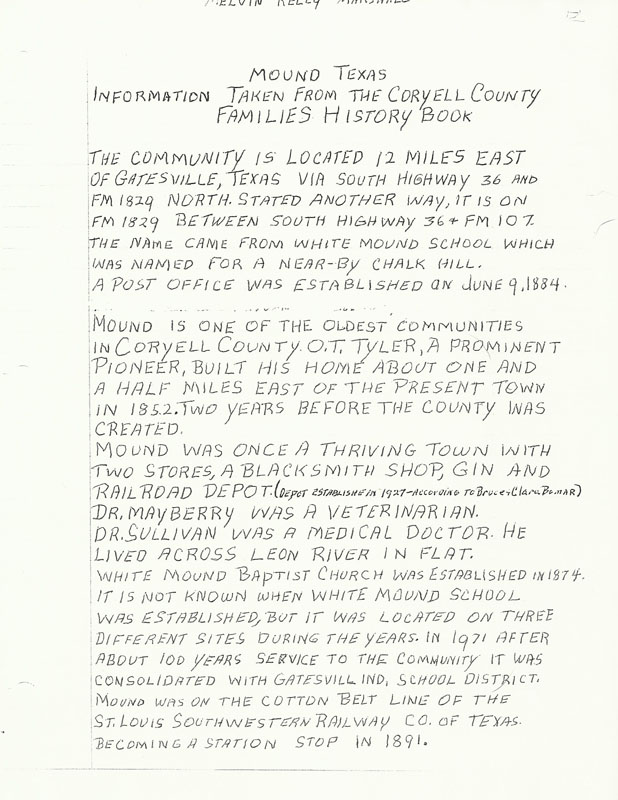 MELVIN KELLY MARSHALL
MOUND TEXAS
INFORMATION TAKEN FROM THE CORYELL COUNTY
FAMILIES HISTORY BOOK
THE COMMUNITY IS LOCATED 12 MILES EAST
OF GATESVILLE, TEXAS VIA SOUTH HIGHWAY 36 AND
FM 1829 NORTH. STATED ANOTHER WAY, IT IS ON
FM 1829 BETWEEN SOUTH HIGHWAY 36 + FM 107.
THE NAME CAME FROM WHITE MOUND SCHOOL WHICH
WAS NAMED FOR A NEAR-BY CHALK HILL.
A POST OFFICE WAS ESTABLISHED ON JUNE 9, 1884.
MOUND IS ONE OF THE OLDEST COMMUNITIES
IN CORYELL COUNTY. O.T. TYLER, A PROMINENT
PIONEER, BUILT HIS HOME ABOUT ONE AND
A HALF MILES EAST OF THE PRESENT TOWN
IN 1852. TWO YEARS BEFORE THE COUNTY WAS
CREATED.
MOUND WAS ONCE A THRIVING TOWN WITH
TWO STORES, A BLACKSMITH SHOP, GIN AND
RAILROAD DEPOT. (DEPOT ESTABLISHE IN 1927-ACCORDING TO Bruce + Clara Bomar)
DR. MAYBERRY WAS A VETERINARIAN.
DR. SULLIVAN WAS A MEDICAL DOCTOR. HE
LIVED ACROSS LEON RIVER IN FLAT.
WHITE MOUND BAPTIST CHURCH WAS ESTABLISHED IN 1874.
IT IS NOT KNOWN WHEN WHITE MOUND SCHOOL
WAS ESTABLISHED, BUT IT WAS LOCATED ON THREE
DIFFERENT SITES DURING THE YEARS. IN 1971 AFTER
ABOUT 100 YEARS SERVICE TO THE COMMUNITY IT WAS
CONSOLIDATED WITH GATESVILL IND. SCHOOL DISTRICT.
MOUND WAS ON THE COTTON BELT LINE OF THE
ST. LOUIS SOUTHWESTERN RAILWAY CO. OF TEXAS.
BECOMING A STATION STOP IN 1891.